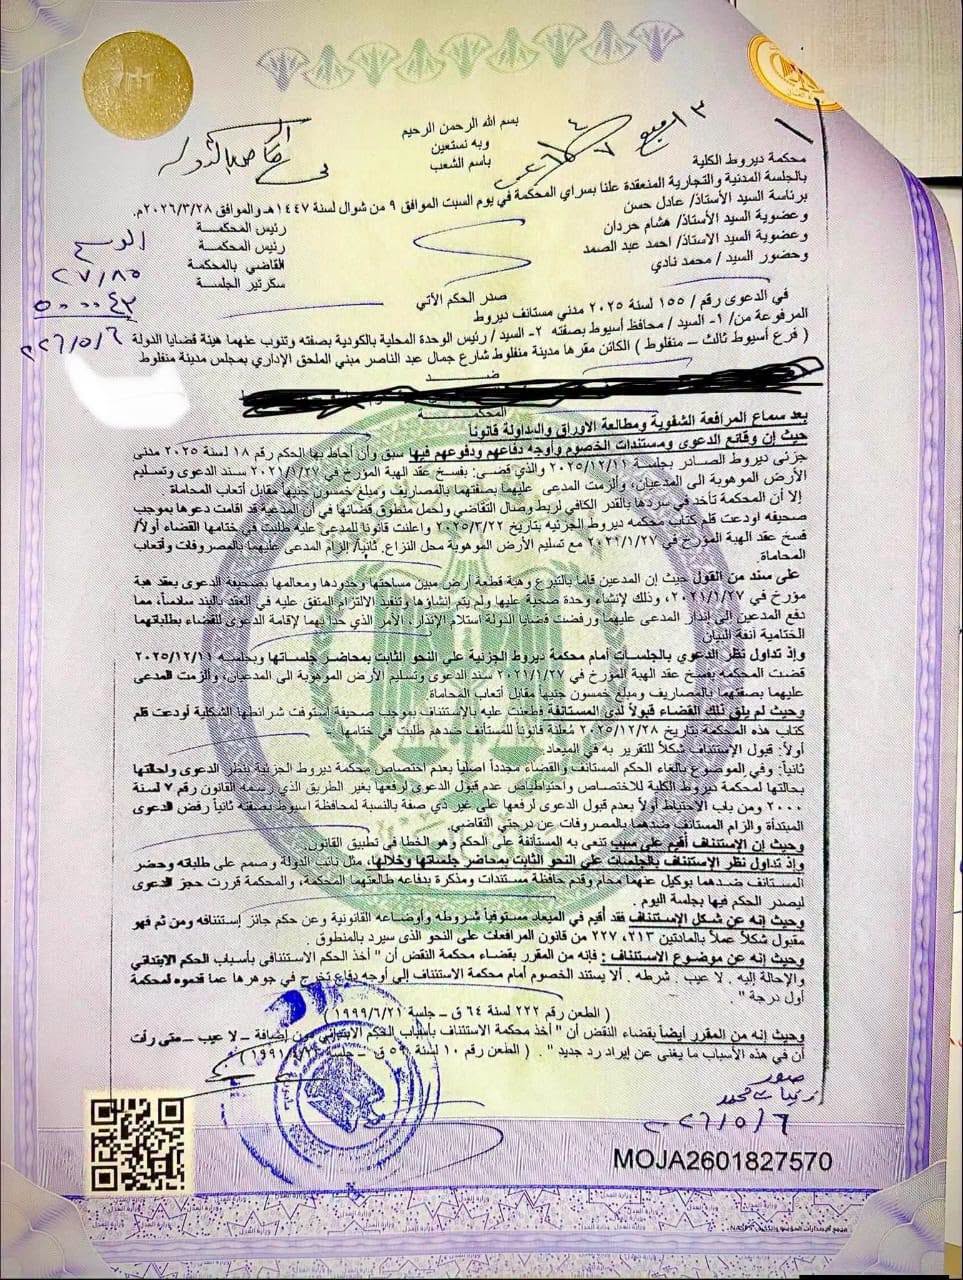 بسم الله الرحمن الرحيم
وبه نستعين
باسم الشعب
محكمة ديروط الكلية
بالجلسة المدنية والتجارية المنعقدة علنا بسراي المحكمة في يوم السبت الموافق ٩ من شوال لسنة ١٤٤٧هـ والموافق ٢٠٢٦/٣/٢٨م.
برئاسة السيد الأستاذ/ عادل حسن رئيس المحكمـــة
وعضوية السيد الأستاذ/ هشام حردان رئيس المحكمـــة
وعضوية السيد الاستاذ/ احمد عبد الصمد القاضي بالمحكمة
وحضور السيد / محمد نادي سكرتير الجلسة
صدر الحكم الأتي
في الدعوى رقم / ١٥٥ لسنة ٢٠٢٥ مدني مستانف ديروط
المرفوعة من/ ١- السيد / محافظ أسيوط بصفته ٢- السيد / رئيس الوحدة المحلية بالكودية بصفته وتنوب عنهما هيئة قضايا الدولة
( فرع أسيوط ثالث – منفلوط ) الكائن مقرها مدينة منفلوط شارع جمال عبد الناصر مبني الملحق الإداري بمجلس مدينة منفلوط
ضــــد
المحكمـــــة
بعد سماع المرافعة الشفوية ومطالعة الاوراق والمداولة قانونا
حيث إن وقائع الدعوى ومستندات الخصوم وأوجه دفاعهم ودفوعهم فيها سبق وأن أحاط بها الحكم رقم ١٨ لسنة ٢٠٢٥ مدني
جزئى ديروط الصادر بجلسة ٢٠٢٥/١٢/١١ والذي قضى: بفسخ عقد الهبة المؤرخ في ٢٠٢١/١/٢٧ سند الدعوى وتسليم
الأرض الموهوبة الى المدعيان، وألزمت المدعى عليهما بصفتهما بالمصاريف ومبلغ خمسون جنيها مقابل أتعاب المحاماة .
إلا أن المحكمة تأخذ في سردها بالقدر الكافي لربط وصال التقاضي ولحمل منطوق قضائها في أن المدعية قد اقامت دعوها بموجب
صحيفه اودعت قلم كتاب محكمه ديروط الجزئيه بتاريخ ٢٠٢٥/٣/٢٢ واعلنت قانونا للمدعى عليه طلبت في ختامها القضاء أولاً/
فسخ عقد الهبة المؤرخ في ٢٠٢١/١/٢٧ مع تسليم الأرض الموهوبة محل النزاع. ثانيا/ إلزام المدعى عليهما بالمصروفات وأتعاب
المحاماة.
على سند من القول حيث إن المدعين قاما بالتبرع وهبة قطعة أرض مبين مساحتها وحدودها ومعالمها بصحيفه الدعوى بعقد هبة
مؤرخ في ٢٠٢١/١/٢٧، وذلك لإنشاء وحدة صحية عليها ولم يتم إنشاؤها وتنفيذ الالتزام المتفق عليه في العقد بالبند سادسا، مما
دفع المدعين الى إنذار المدعى عليهما ورفضت قضايا الدولة استلام الإنذار، الأمر الذي حدا بهما لإقامة الدعوى للقضاء بطلباتهما
الختامية آنفة البيان
وإذ تداول نظر الدعوي بالجلسات أمام محكمة ديروط الجزئية على النحو الثابت بمحاضر جلساتها وبجلسه ٢٠٢٥/١٢/١١
قضت المحكمه بفسخ عقد الهبة المؤرخ في ٢٠٢١/١/٢٧ سند الدعوى وتسليم الأرض الموهوبة الى المدعيان، والزمت المدعى
عليهما بصفتهما بالمصاريف ومبلغ خمسون جنيها مقابل أتعاب المحاماة
وحيث لم يلق ذلك القضاء قبولاً لدى المستانفة فطعنت عليه بالإستئناف بموجب صحيفة استوفت شرائطها الشكلية أودعت قلم
كتاب هذه المحكمة بتاريخ ٢٠٢٥/١٢/٢٨ معلنة قانونا للمستأنف ضدهم طلبت في ختامها :-
أولا: قبول الإستئناف شكلاً للتقرير به في الميعاد
ثانيا: وفي الموضوع بالغاء الحكم المستانف والقضاء مجدداً اصليا بعدم اختصاص محكمة ديروط الجزئية بنظر الدعوى واحالتها
بحالتها لمحكمة ديروط الكلية للاختصاص واحتياطياً عدم قبول الدعوى لرفعها بغير الطريق الذي رسمه القانون رقم ٧ لسنة
٢٠٠٠ ومن باب الاحتياط أولاً بعدم قبول الدعوى لرفعها على غير ذي صفة بالنسبة لمحافظة اسيوط بصفته ثانياً رفض الدعوى
المبتدأة والزام المستانف ضدهما بالمصروفات عن درجتي التقاضي.
وحيث إن الإستئناف أقيم على سبب تنعى به المستأنفة على الحكم وهو الخطا في تطبيق القانون.
وإذ تداول نظر الإستئناف بالجلسات على النحو الثابت بمحاضر جلساتها وخلالها، مثل نائب الدولة وصمم على طلباته وحضر
المستانف ضدهما بوكيل عنهما محام وقدم حافظة مستندات ومذكرة بدفاعه طالعتهما المحكمة، والمحكمة قررت حجز الدعوى
ليصدر الحكم فيها بجلسة اليوم .
وحيث إنه عن شكل الإستئناف فقد أقيم في الميعاد مستوفياً شروطه وأوضاعه القانونية وعن حكم جائز إستئنافه ومن ثم فهو
مقبول شكلاً عملاً بالمادتين ٢١٣، ٢٢٧ من قانون المرافعات على النحو الذى سيرد بالمنطوق .
وحيث إنه عن موضوع الاستئناف : فإنه من المقرر بقضاء محكمة النقض أن " أخذ الحكم الاستئنافى بأسباب الحكم الابتدائي
والإحالة إليه . لا عيب . شرطه . ألا يستند الخصوم أمام محكمة الاستئناف إلى أوجه دفاع تخرج في جوهرها عما قدموه لمحكمة
أول درجة " .
( الطعن رقم ٢٢٢ لسنة ٦٤ ق – جلسة ١٩٩٩/٦/٢١ )
وحيث إنه من المقرر أيضاً بقضاء النقض أن " أخذ محكمة الاستئناف بأسباب الحكم الابتدائي دون إضافة – لا عيب – متى رأت
أن في هذه الأسباب ما يغنى عن إيراد رد جديد " . ( الطعن رقم ١٠ لسنة
MOJA2601827570